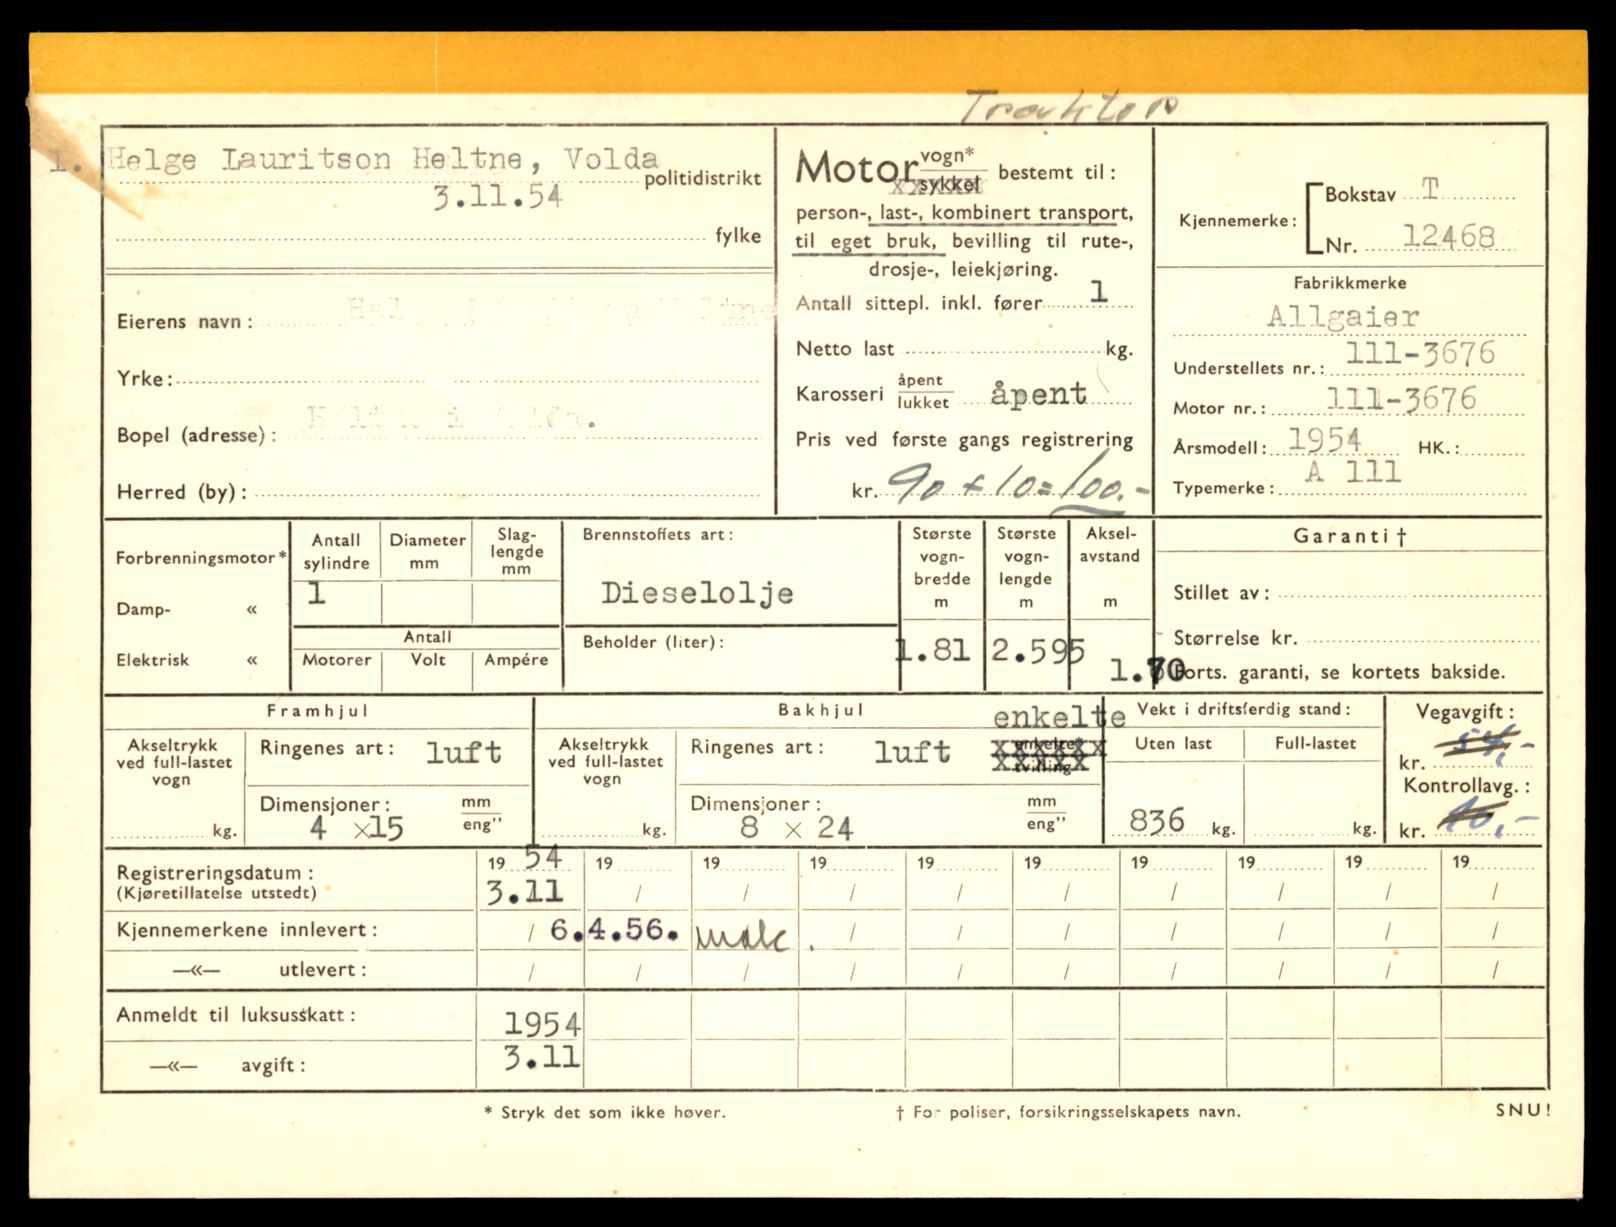 Traktor
I. Helge Lauritson Heltne, Volda
politidistrikt
3.11.54
fylke
Eierens navn:
Yrke:
Bopel (adresse):
Herred (by):
Motor vogn* sykkel bestemt til:
person-, last-, kombinert transport,
til eget bruk, bevilling til rute-,
drosje-, leiekjøring.
Antall sittepl. inkl. fører 1
Netto last kg.
Karosseri åpent lukket åpent
Pris ved første gangs registrering
kr. 90 + 10 = 100.-
Kjennemerke: Bokstav T
Nr. 12468
Fabrikkmerke
Allgaier
Understellets nr.: 111-3676
Motor nr.: 111-3676
Årsmodell: 1954 HK.:
Typemerke: A 111
Forbrenningsmotor*
Damp- «
Elektrisk «
Antall sylindre
Diameter mm
Slag-lengde mm
1
Antall
Motorer Volt Ampére
Brennstoffets art:
Dieselolje
Beholder (liter):
Største vogn-bredde m
1.81
Største vogn-lengde m
2.595
Aksel-avstand m
1.70
Garanti †
Stillet av:
Størrelse kr.
Forts. garanti, se kortets bakside.
Framhjul
Akseltrykk ved full-lastet vogn
kg.
Ringenes art: luft
Dimensjoner: mm eng”
4 x15
Bakhjul
Akseltrykk ved full-lastet vogn
kg.
Ringenes art: luft
enkelte
enkelte* tvilling
Dimensjoner: mm eng”
8 x 24
Vekt i driftsferdig stand:
Uten last Full-lastet
836 kg. kg.
Vegavgift:
kr. 54,-
Kontrollavg.:
kr. 10,-
19 54 19 19 19 19 19 19 19 19 19
Registreringsdatum:
(Kjøretillatelse utstedt)
3.11 / / / / / / / / /
Kjennemerkene innlevert: / 6.4.56. / / / / / / /
—«— utlevert: / / / / / / / / / /
Anmeldt til luksusskatt: 1954
—«— avgift: 3.11
* Stryk det som ikke høver.
† For poliser, forsikringsselskapets navn.
SNU!